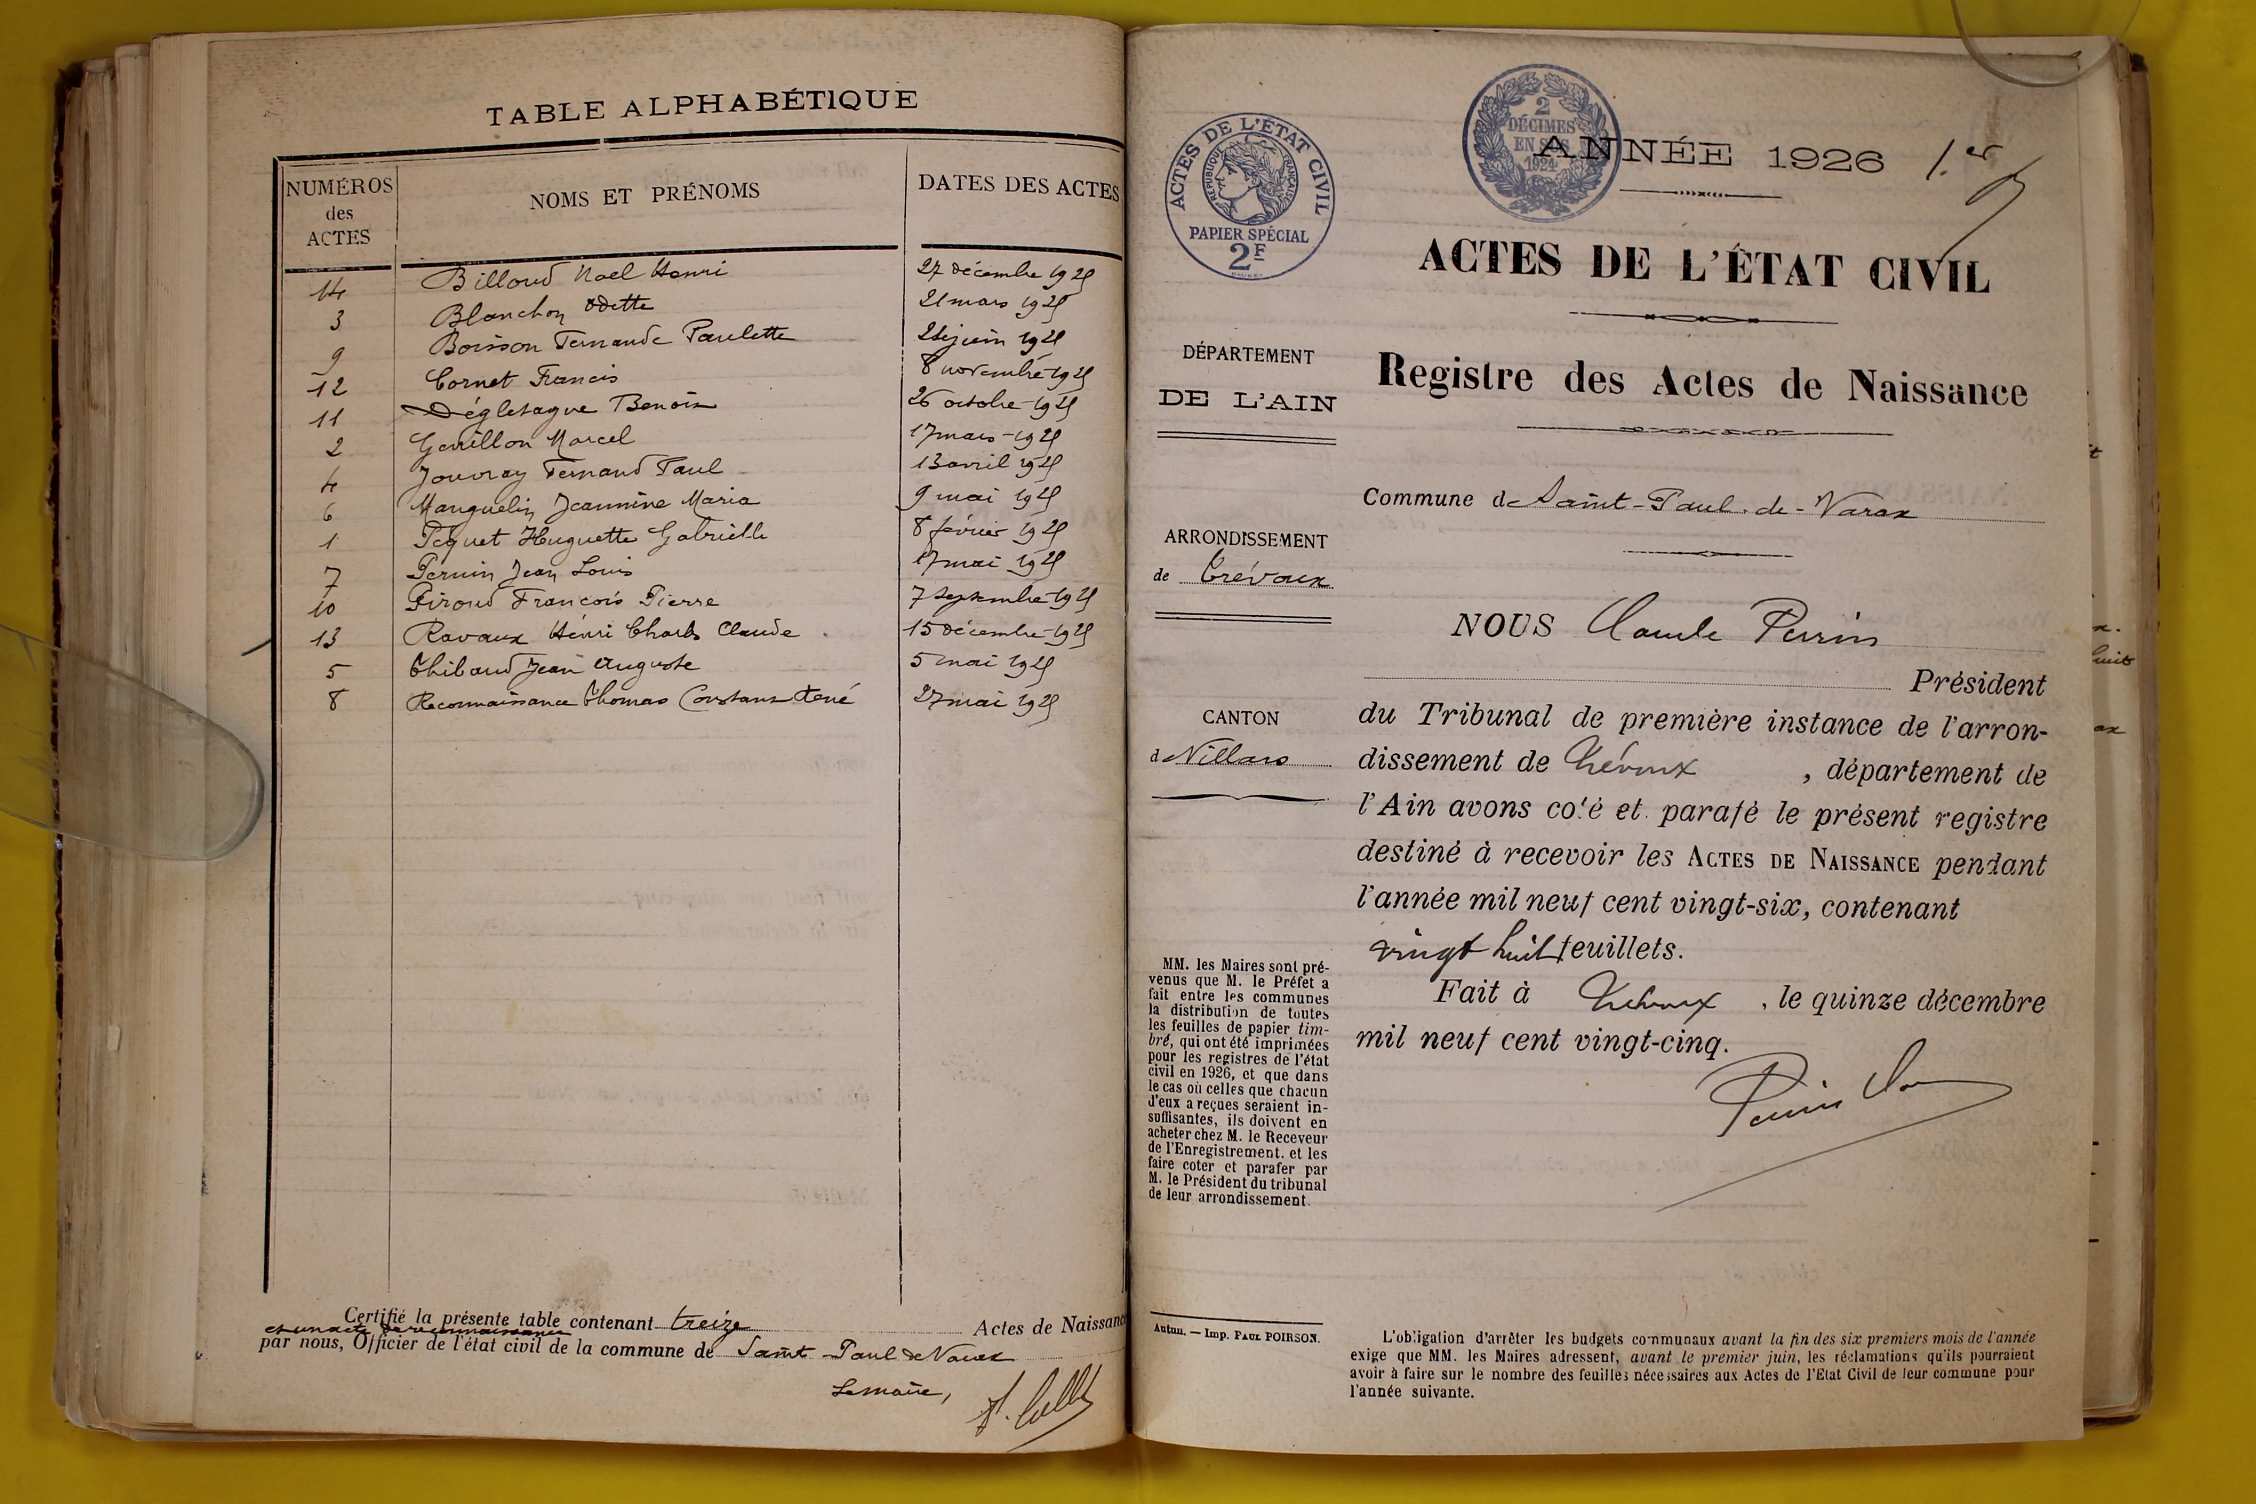 TABLE ALPHABÉTIQUE
NUMÉROS des ACTES NOMS ET PRÉNOMS DATES DES ACTES
14 Billoud Noel Henri 27 décembre 1925
3 Blanchon Odette 21 mars 1925
9 Boisson Fernande Paulette juin 1925
12 Cornet Francis 8 novembre 1925
11 Dégletagne Benoit 26 octobre 1925
2 Genillon Marcel 17 mars 1925
4 Jouvray Fernand Paul 13 avril 1925
6 Manguelin Jeannine Maria 9 mai 1925
1 Péquet Huguette Gabrielle 8 février 1925
7 Perrin Jean Louis 17 mai 1925
10 Piroud François Pierre 7 septembre 1925
13 Ravaux Hénri Charles Claude 15 décembre 1925
5 Thibaud Jean Auguste 5 mai 1925
8 Reconnaissance Thomas Constant René 27 mai 1925
Certifié la présente table contenant treize Actes de Naissance
et un acte de reconnaissance
par nous, Officier de l'état civil de la commune de Saint-Paul de Varax
Le maire,
ACTES DE L'ÉTAT CIVIL
RÉPUBLIQUE FRANÇAISE
PAPIER SPÉCIAL
2F
2
DÉCIMES
EN SUS
1924
ANNÉE 1926 1.er
ACTES DE L'ÉTAT CIVIL
Registre des Actes de Naissance
DÉPARTEMENT
DE L'AIN
ARRONDISSEMENT
de Trévoux
CANTON
de Villars
MM. les Maires sont pré-
venus que M. le Préfet a
fait entre les communes
la distribution de toutes
les feuilles de papier tim-
bré, qui ont été imprimées
pour les registres de l'état
civil en 1926, et que dans
le cas où celles que chacun
d'eux a reçues seraient in-
suffisantes, ils doivent en
acheter chez M. le Receveur
de l'Enregistrement. et les
faire coter et parafer par
M. le Président du tribunal
de leur arrondissement.
Autun. — Imp. PAUL POIRSON.
Commune de Saint-Paul-de-Varax
NOUS Claude Perrin
Président
du Tribunal de première instance de l'arron-
dissement de Trévoux , département de
l'Ain avons coté et parafé le présent registre
destiné à recevoir les ACTES DE NAISSANCE pendant
l'année mil neuf cent vingt-six, contenant
vingt huit feuillets.
Fait à Trévoux , le quinze décembre
mil neuf cent vingt-cinq.
Perrin
L'obligation d'arrêter les budgets communaux avant la fin des six premiers mois de l'année
exige que MM. les Maires adressent, avant le premier juin, les réclamations qu'ils pourraient
avoir à faire sur le nombre des feuilles nécessaires aux Actes de l'Etat Civil de leur commune pour
l'année suivante.